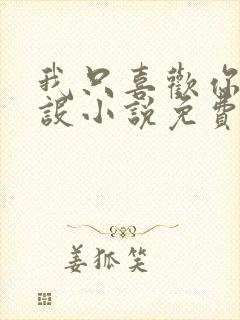 我只喜歡你
設小說免費
姜狐笑